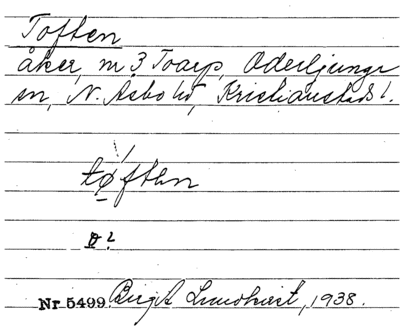 Toften
åker, nr 3 Toarp, Oderljunga
sn, N. Åsbo hd, Kristianstads l.
tøften
ø?
Nr 5499. Birgit Lundkvist, 1938.